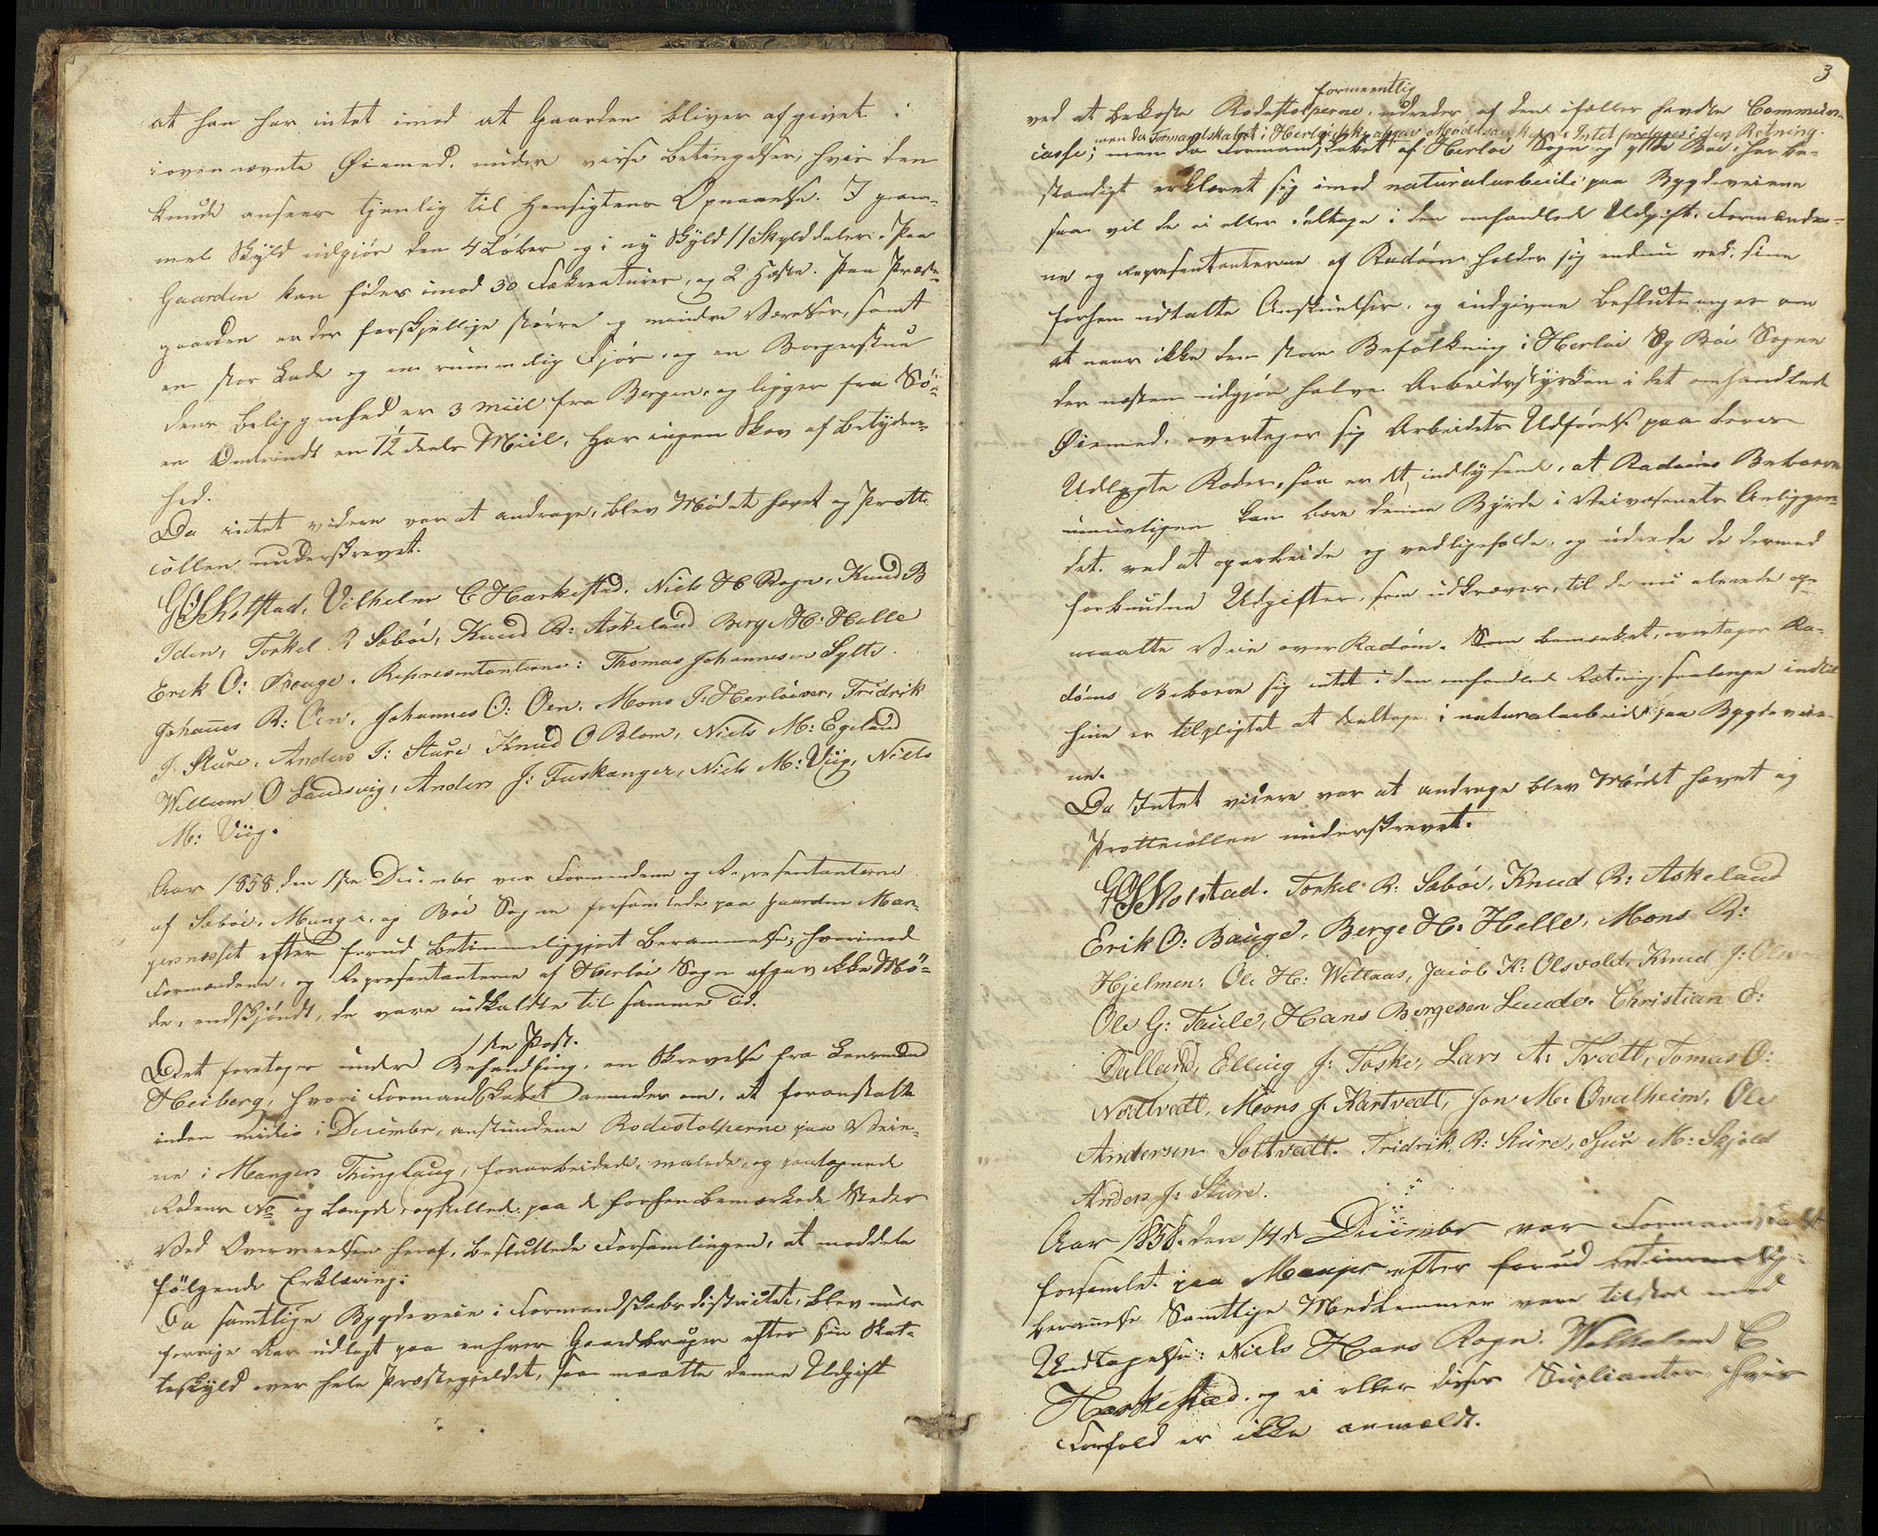 at han har intet imod at Gaarden bliver afgivet i
ovennævnte Øiemed. under visse Betingelser, hvis den
kunde ansees tjenlig til Hensigtens Opnaaelse. I gam-
mel Skyld udgjør den 4 Løber og i ny Skyld 11 Skylddaler. Paa
Gaarden kan fødes imod 30 Fækreaturer, og 2 Heste. Paa Præste-
gaarden er der forskjellige større og mindre Værelser, samt
en stor Lade og en rummelig Fjøs, og en Borgerstue
dens Beliggenhed er 3 Miil fra Bergen, og ligger fra Sø-
en Omtrindt en 1/12 deels Miil, har ingen Skov af Betyden-
hed.
Da intet videre var at andrage, blev Mødet hævet og Protte-
collen underskrevet.
Vilhelm C Harkestad, Niels H Rogn, Knud B
Iden, Torkel R Sæbøe, Knud R: Askeland Berge H: Helle
Erik O: Bauge. Representanterne: Thomas Johannesen Sylte
Johanes R: Øen, Johannes O: Øen, Mons J: Herløever, Fridrik
J. Sture, Anders J: Sture Knud O Blom, Niels M: Egeland
Willum O Landsvig, Anders J: Tuskanger, Niels M: Viig, Niels
M: Viig.
Aar 1858 den 1ste December var Formendene og Representanterne
af Sæbøe, Manger, og Bøe Sogne forsamlede paa Gaarden Man-
gernæsset efter forud betimmeliggjort Berammelse; hvorimod
Formændene, og Representanterne af Herløe Sogn afgav ikke Mø-
de, endskjøndt, de vare indkaldte til samme Tid.
1ste Post.
Det foretages under Behandling, en Skrevelse fra Lensmand
Heiberg, hvori Formandskabet anmodes om, at foranstalte
inden midio i December, anstundene Rodestolperne paa Veie-
ne i Mangers Thinglaug, forarbeidede, malede, og paategnede
Rodens No og Længde, opstillede paa de forhen bemærkede Steder
Ved Overveielsen heraf, besluttede Forsamlingen, at meddele
følgende Erklæring:
Da samtlige Bygdeveie i Formandskabsdistrictet, blev under
forrige Aar udlagt paa enhver Gaardbruger efter sin Skat-
teskyld over hele Præstegjeldet, saa maatte denne Udgift
3
formeentlig
ved at bekoste Rodestolperne, udredes af den ifælles havdte Commune-
men da Formandskabet i Herløe ikke afgav Møde saa kunde Intet foretages i den Retning.
casse; men da Formandskabet af Herløe Sogn og ytte Bøe har be-
standigt erklæret sig imod naturalarbeide paa Bygdeveiene
saa vil de ei eller deltage i den omhandlede Udgift. Formænde-
ne og Representanterne af Radøen holder sig endnu ved sine
forhen udtalte Anskuelser, og indgivne Beslutninger om
at naar ikke den store Befolkning i Herløe og Bøe Sogne
der næsten udgjør halve Arbeidsstyrken i det omhandlede
Øiemed, overtager sig Arbeidets Udførelse paa deres
Udlagte Roder, saa er det indlysende, at Radøens Beboere
umueligen kan bære denne Byrde i Veivæsenets Anliggen-
det. ved at oparbeide og vedligeholde, og udrede de dermed
forbundne Udgifter, som udkræver, til de nu alerede op-
maalte Veie over Radøen. Som bemærket, overtager Ra-
døens Beboere sig intet i den omhandlede Retning saalænge indtil
hine er tilpligtet at deeltage i naturalarbeidet paa Bygdeveie-
ne.
Da Intet videre var at andrage blev Mødet hævet og
Prottecollen underskrevet.
Torkel R: Sæbøe, Knud R: Askeland
Erik O: Bauge, Berge H: Helle, Mons R:
Hjelmen, Ole H: Wettaas, Jacob K: Olsvold, Knud J:
Ole G: Taule, Hans Bergesen Lunde. Christian O:
Dalland, Elling J: Toske, Lars A: Tvedt, Tomas O:
Nodtvedt, Mons J. Hartvedt, Jon M: Qvalheim, Ole
Andersen Soltvedt. Fridrik R: Sture, Sjur M: Skjold
Anders J: Sture.
Aar 1858. den 14de December var Formandskabet
forsamlet paa Manger efter forud betimmelig
beramelse Samtlige Medlemmer vare tilstede med
Undtagelse: Niels Hans Rogn. Welhelm C
Harkestad, og ei eller disses Suplianter, hvis
Forfald er ikke anmeldt.